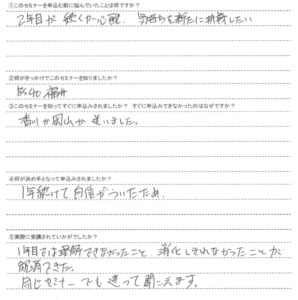 ①このセミナーを申込む前に悩んでいたことは何ですか？
2年目が続くか心配、気持ちも新たに挑戦したい
②何がきっかけでこのセミナーを知りましたか？
③このセミナーを知ってすぐに申込みされましたか？ すぐに申込みできなかったのはなぜですか？
香川か岡山か迷いました。
④何が決め手となって申込みされましたか？
1年続けて自信がついたため。
⑤実際に受講されていかがでしたか？
1年目では理解できなかったこと 消化しきれなかったことが
解消できた。
同じセミナーでも違って聞こえます。